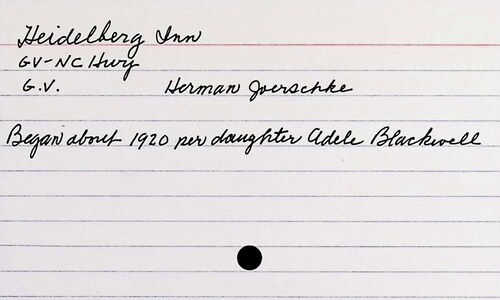 Heidelberg Inn
GV-NC Hwy
G.V. Herman Joerschke
Began about 1920 per daughter Adele Blackwell